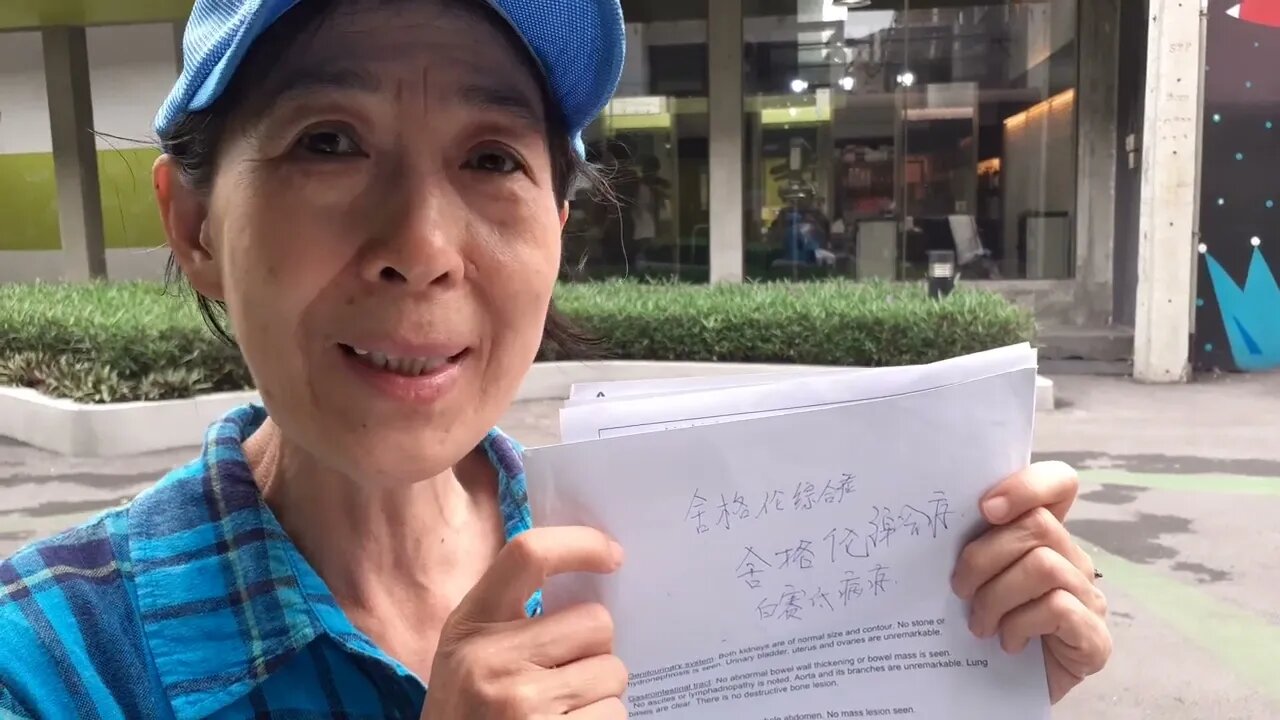 舍格伦综合症
舍格伦
白赛
Genitourinary system: Both kidneys are of normal size and contour. No stone or
hydronephrosis is seen. Urinary bladder, uterus and ovaries are unremarkable.
Gastrointestinal tract: No abnormal bowel wall thickening or bowel mass is seen.
No ascites or lymphadnopathy is noted. Aorta and its branches are unremarkable. Lung
bases are clear. There is no destructive bone lesion.
abdomen. No mass lesion seen.